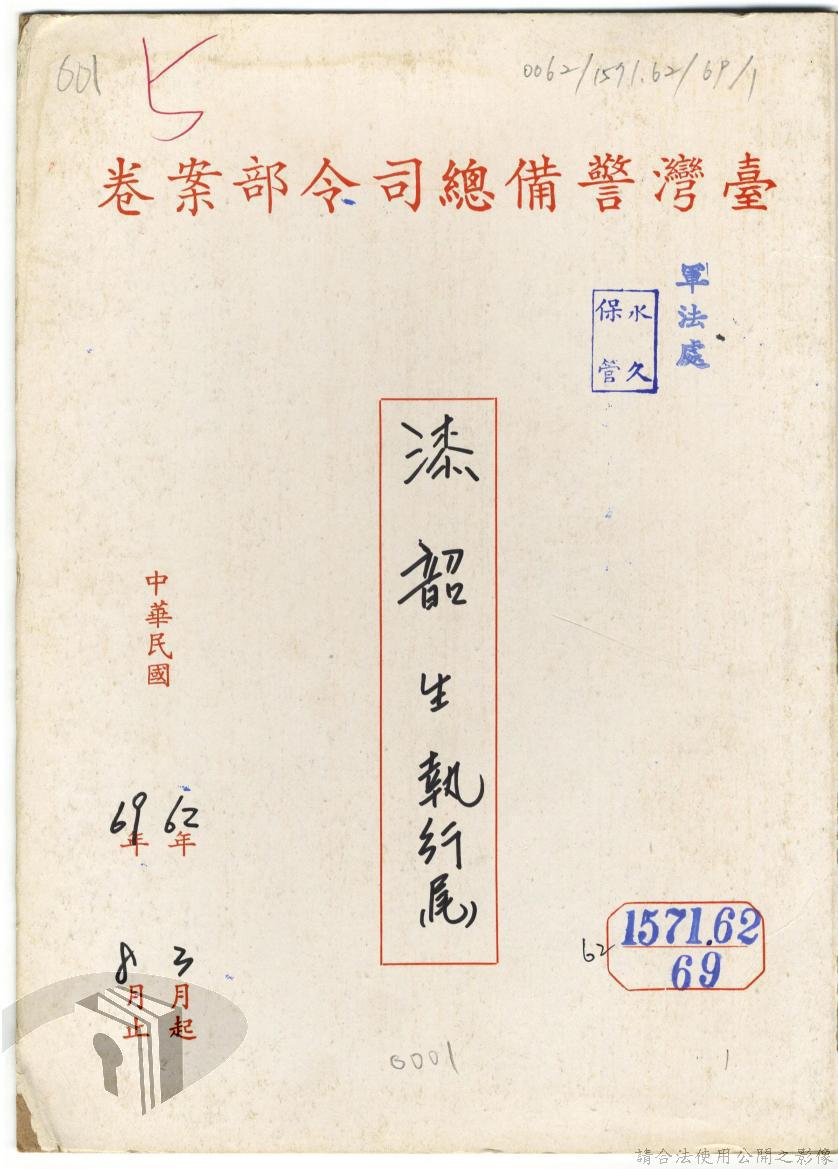 601
0062/1571.62/69/1
臺灣警備總司令部案卷
軍法處
永久
保管
漆韶生執行(尾)
中華民國
62年3月起
69年8月止
62
1571.62
69
0001
1
請合法使用公開之影像